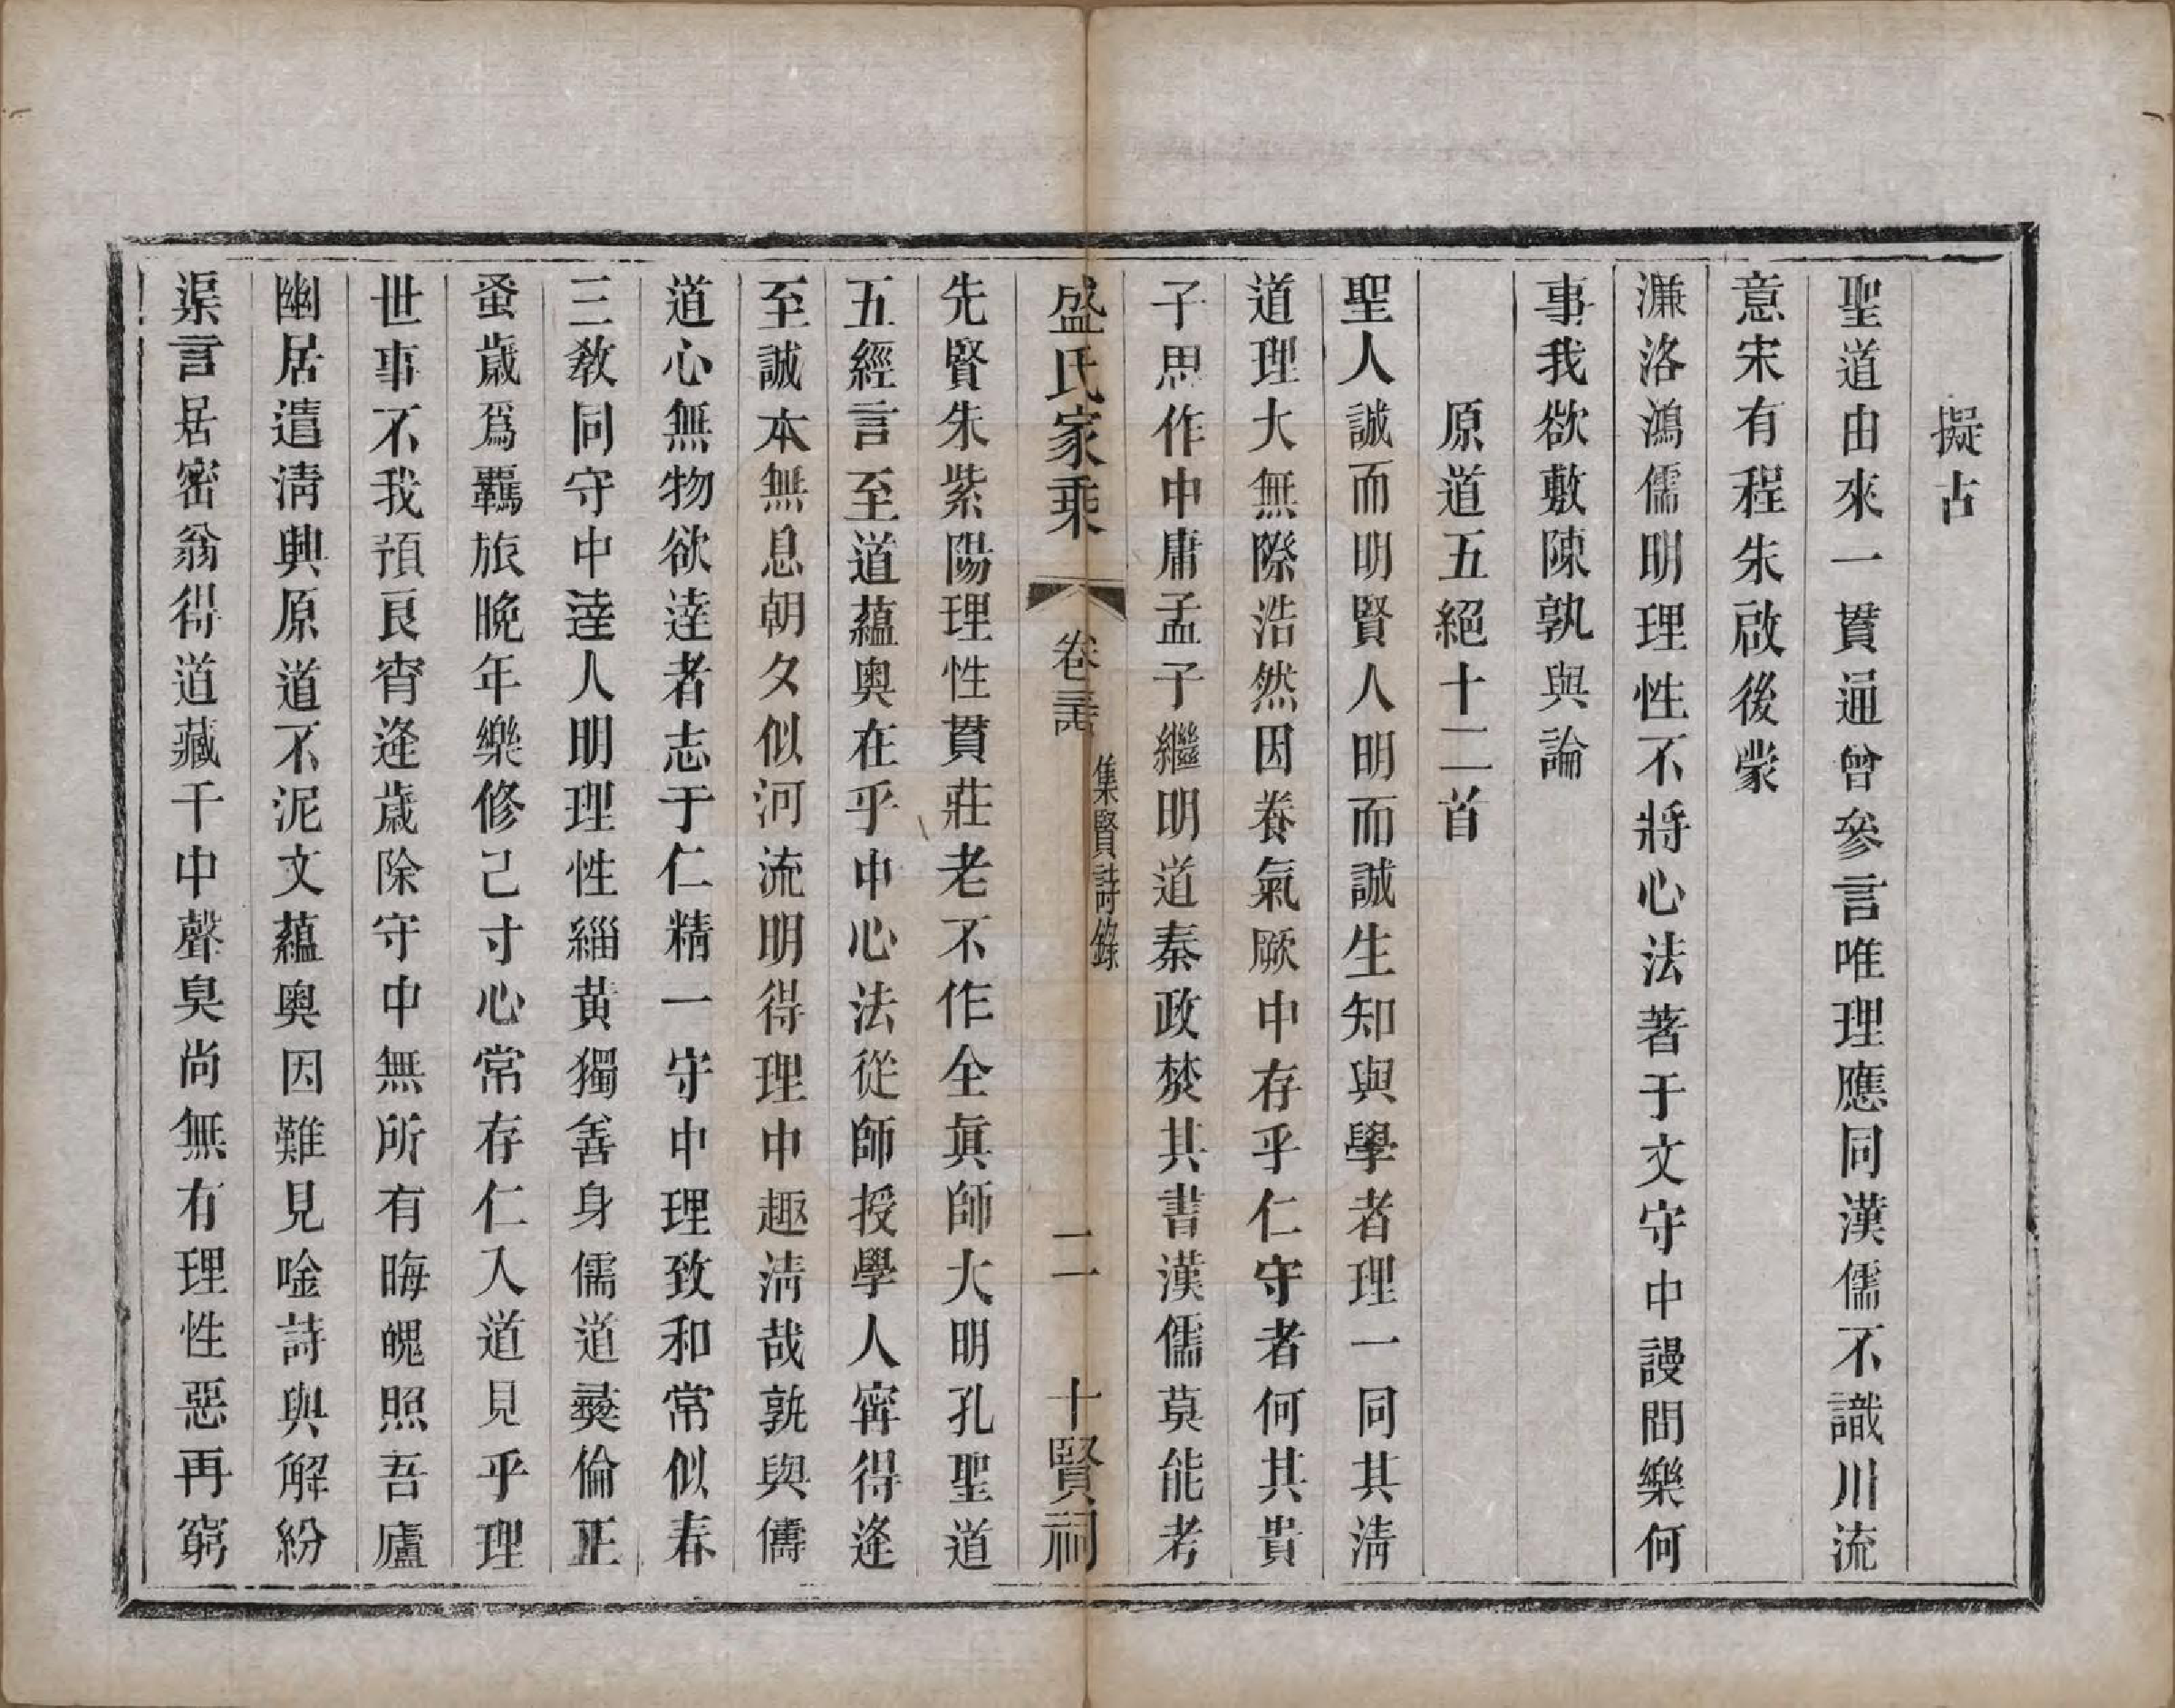 擬古
聖道由來一貫通曾參言唯理應同漢儒不識川流
意宋有程朱啟後蒙
濂洛鴻儒明理性不將心法著于文守中謾問樂何
事我欲敷陳孰與論
原道五絕十二首
聖人誠而明明賢人明而誠生知與學者理一同其清
道理大無際浩然因養氣厥中存乎仁守者何其貴
子思作中庸孟子繼明道秦政焚其書漢儒莫能考
盛氏家乘
卷
集賢詩錄
二
十賢祠
先賢朱紫陽理性貫莊老不作全眞師大明孔聖道
五經言至道蘊奧在乎中心法從師授學人寗得逢
至誠本無息朝夕似河流明得理中趣清哉孰與儔
道心無物欲達者志于仁精一守中理致和常似春
三敎同守中達人明理性緇黃獨善身儒道彝倫正
蚤歲爲羈旅晚年樂修己寸心常存仁入道見乎理
世事不我預良宵逢歲除守中無所有晦魄照吾廬
幽居遣清興原道不泥文蘊奧因難見唫詩與解紛
渠言居密翁得道藏于中聲臭尚無有理性惡再窮